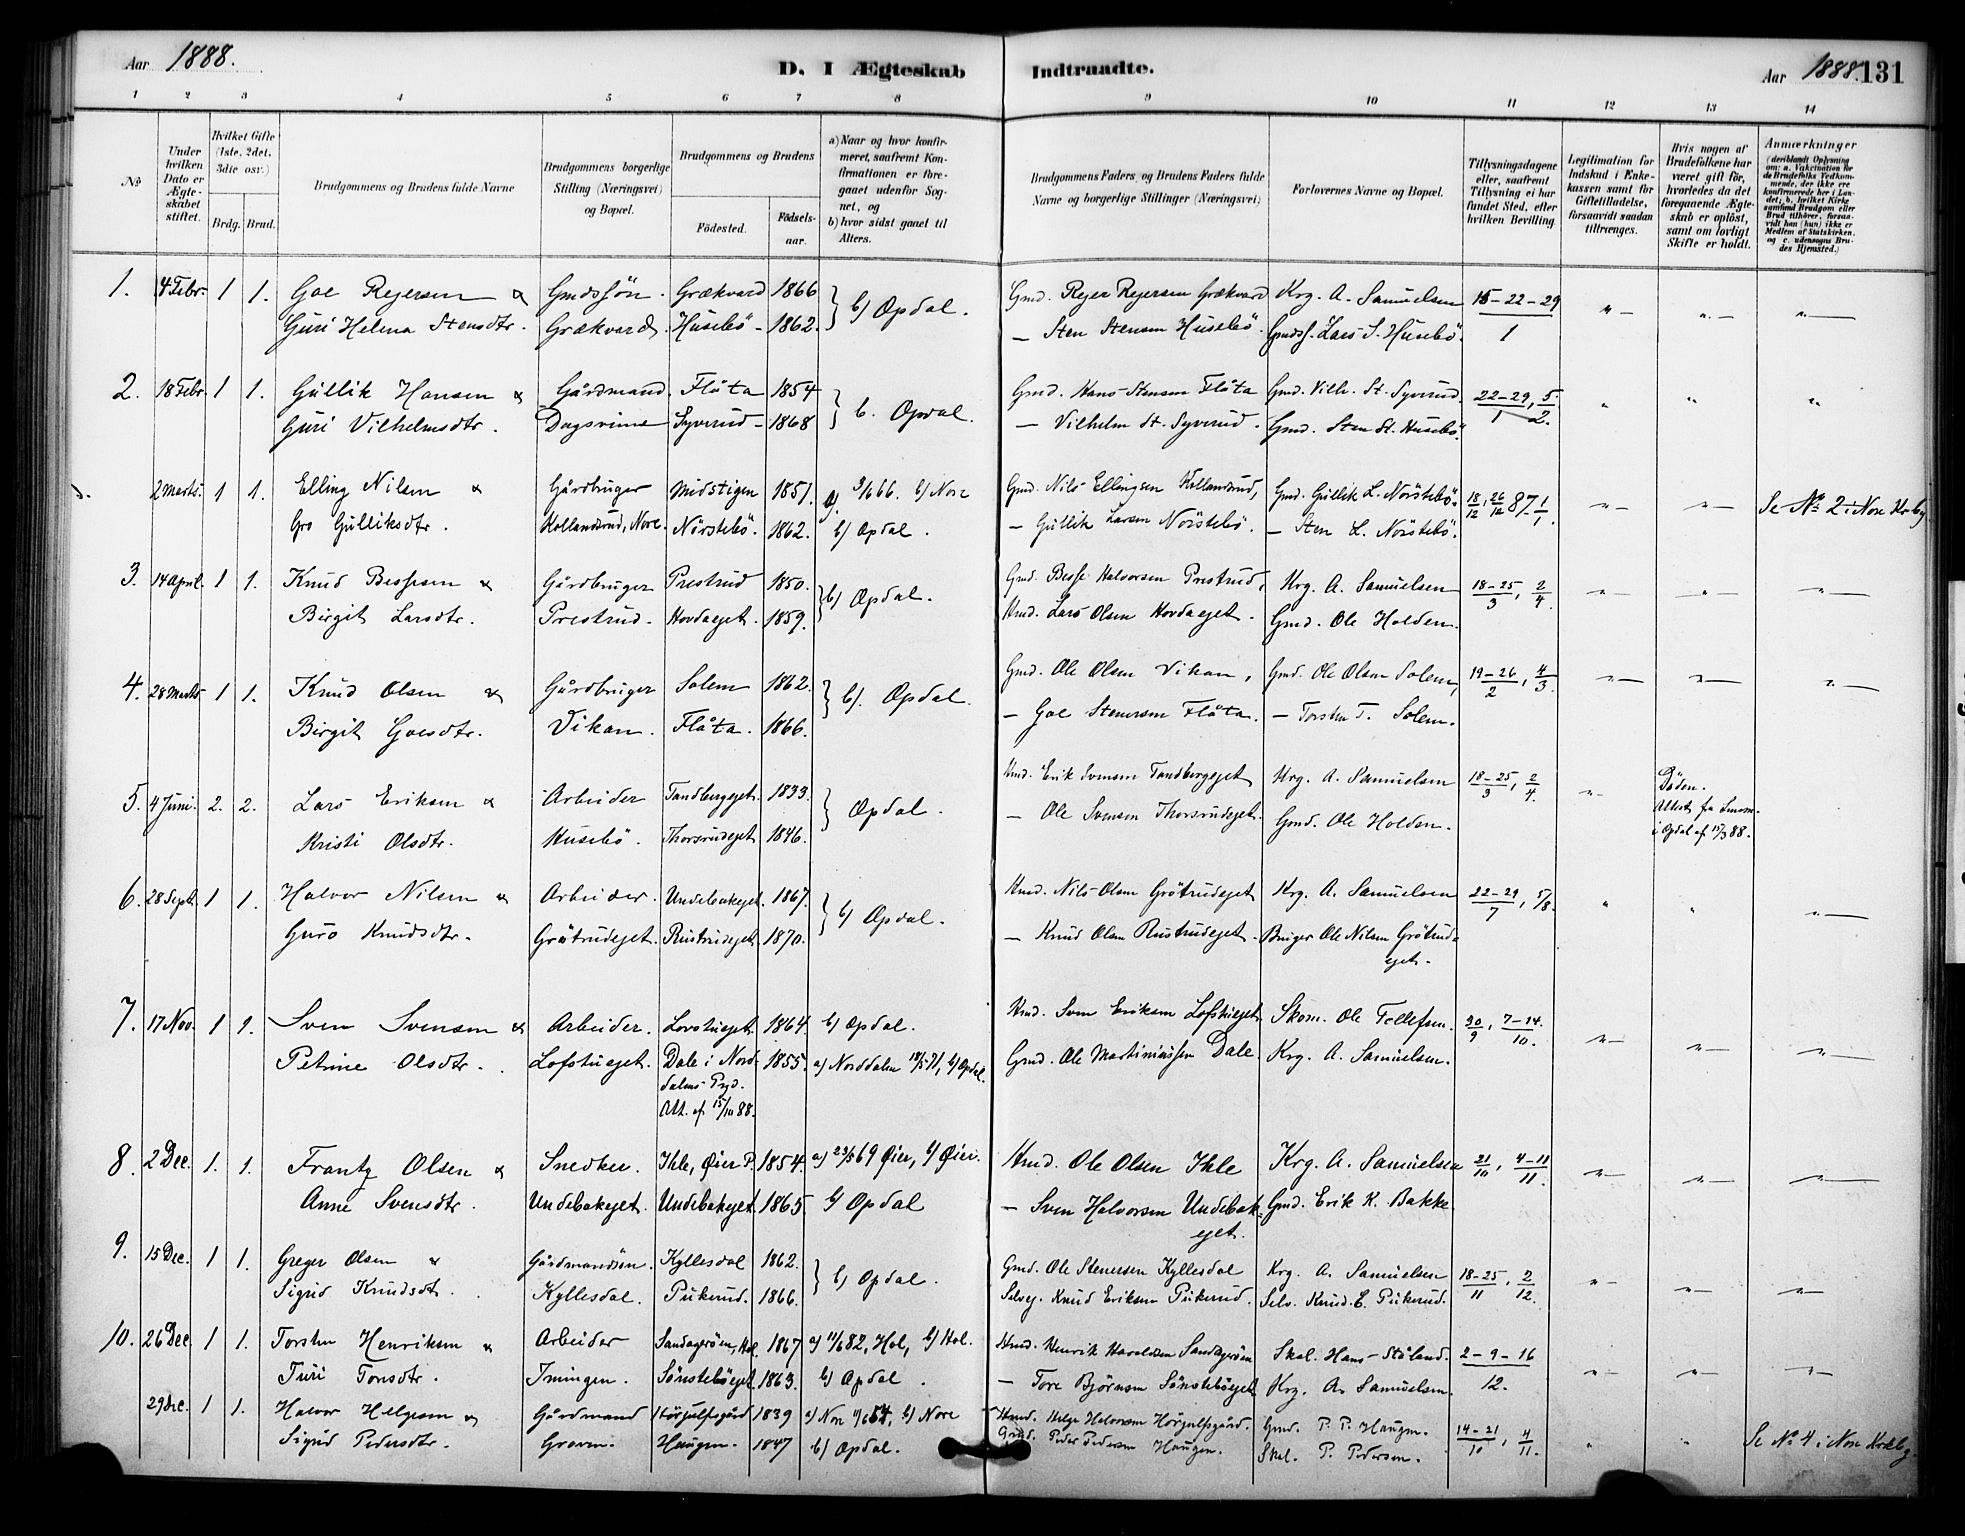 Aar 1888.
D. I Ægteskab Indtraadte.
Aar 1888. 131
1 2 3 4 5 6 7 8 9 10 11 12 13 14
№
Under hvilken Dato er Ægteskabet stiftet.
Hvilket Gifte (1ste, 2det, 3die osv.)
Brdg. Brud.
Brudgommens og Brudens fulde Navne
Brudgommens borgerlige Stilling (Næringsvei) og Bopæl.
Brudgommens og Brudens
Fødested.
Fødselsaar.
a) Naar og hvor konfirmeret, saafremt Konfirmationen er foregaaet udenfor Sognet, og
b) hvor sidst gaaet til Alters.
Brudgommens Faders, og Brudens Faders fulde Navne og borgerlige Stillinger (Næringsvei)
Forlovernes Navne og Bopæl.
Tillysningsdagene eller, saafremt Tillysning ei har fundet Sted, efter hvilken Bevilling.
Legitimation for Indskud i Enkekassen samt for Giftetilladelse, forsaavidt saadan tiltrænges.
Hvis nogen af Brudefolkene har været gift før, hvorledes da det foregaaende Ægteskab er opløst, samt om lovligt Skifte er holdt.
Anmærkninger
1. 4 Febr. 1 1. Goe Reiersen & Gmdssön. Grækvard 1866 b) Opdal. Gmd. Reier Reiersen Grækvard Krg. A. Samuelsen 15-22-29
Guri Helena Stensdtr. Grækvard. Husebö - 1862. — Sten Stensen Husebö. Gmdss. Lars S. Husebö. 1
2. 18 Febr. 1 1. Gullik Hansen & Gårdmand. Flåta 1854 b. Opdal. Gmd. Hans Stensen Flåta Gmd. Vilh. St. Syverud. 22-29, 5
Guri Vilhelmsdtr. Dagsvime Syverud - 1868 — Vilhelm St. Syverud. Gmd. Sten St. Husebö. 1 2.
2 Marts. 1 1. Elling Nilsen & Gårdbruger Midstigen 1851. a) 3/6 66. b) Nore Gmd. Nils Ellingsen Kollandsrud, Gmd. Gullik L. Nörstebö. 18/12, 26/12 87 - 1/1. Se No 2 i Nore Krkbg.
Gro Gulliksdtr. Kollandsrud, Nore. Nörstebö. 1862. b) Opdal. — Gullik Larsen Nörstebö. — Sten L. Nörstebö.
3. 14 April. 1 1. Knud Bessesen & Gårdbruger Prestrud 1850. b) Opdal. Gmd. Besse Halvorsen Prestrud, Krg. A. Samuelsen 18-25, 2
Birgit Larsdtr. Prestrud. Hovdaeget. 1859. Hmd. Lars Olsen Hovdaeget. Gmd. Ole Holden. 3 4.
4. 28 Marts 1 1. Knud Olsen & Gårdbruger Solem 1862. b). Opdal. Gmd. Ole Olsen Vikan, Gmd. Ole Olsen Solem, 19-26, 4
Birgit Goesdtr. Vikan. Flåta. 1866. — Goe Stenersen Flåta. — Torsten T. Solem. 2 3.
5. 4 Juni. 2. 2. Lars Eriksen & Arbeider Tandbergeget. 1833. Opdal. Hmd. Erik Svensen Tandbergeget Krg. A. Samuelsen 18-25, 2 Döden.
Kristi Olsdtr. Husebö. Thorsrudeget 1846. — Ole Svensen Thorsrudeget. Gmd. Ole Holden. 3 4. Attest fra Lensm. i Opdal af 15/3 88.
6. 28 Sept. 1 1. Halvor Nilsen & Arbeider. Undebakeget. 1867. b) Opdal. Hmd. Nils Olsen Grötrudeget Krg. A. Samuelsen 22-29, 5/8.
Guro Knudsdtr. Grötrudeget. Rustrudeget. 1870. — Knud Olsen Rustrudeget. Bruger Ole Nilsen Grötrudeget. 7
7. 17 Nov. 1 1. Sven Svensen & Arbeider. Lovstueget. 1864. b) Opdal. Hmd. Sven Eriksen Lofstueget Skom. Ole Tollefsen. 30, 7-14.
Petrine Olsdtr. Lofstueget. Dale i Norddalens Pgd. Att. af 15/10 88. 1855. a) Norddalen 18/5 71, b) Opdal. Gmd. Ole Martiniussen Dale. Krg. A. Samuelsen. 9 10.
8. 2 Dec. 1. 1. Frantz Olsen & Snedker. Ihle, Øier P. 1854. a) 23/5 69 Øier, b) Øier. Hmd. Ole Olsen Ihle Krg. A. Samuelsen 21, 4-11
Anne Svensdtr. Undebakeget. Undebakeget. 1865. b) Opdal — Sven Halvorsen Undebakeget. Gmd. Erik K. Bakke. 10 11.
9. 15 Dec. 1 1. Greger Olsen & Gårdmandsön. Kyllesdal 1862. b) Opdal. Gmd. Ole Stenersen Kyllesdal Krg. A. Samuelsen 18-25, 2
Sigrid Knudsdt. Kyllesdal. Pukerud. 1866. Selvej. Knud Eriksen Pukerud. Selv. Knud E. Pukerud. 11 12.
10. 26 Dec. 1 1. Torsten Henriksen & Arbeider Sandagröen, Hol. 1867 a) 11/6 82, Hol, b) Hol. Hmd. Henrik Haraldsen Sandagröen Skol. Hans Ståland. 2-9-16
Turi Torsdtr. Imingen. Sönsteböeget 1863. b) Opdal. — Tore Björnsen Sönsteböeget Krg. A. Samuelsen. 12.
29 Dec. 1 1. Halvor Helgesen & Gårdmand Hörjulfsgård 1839 a) Nore 11/6 54, b) Nore Hmd. Helge Halvorsen Hörjulfsgård. Gmd. P. P. Haugen. 14-21, 4 Se No 4 i Nore Krkbg.
Sigrid Pedersdtr. Graven. Haugen. 1847 b) Opdal. Gmd. Peder Pedersen Haugen. Skol. P. Pedersen. 10 11.